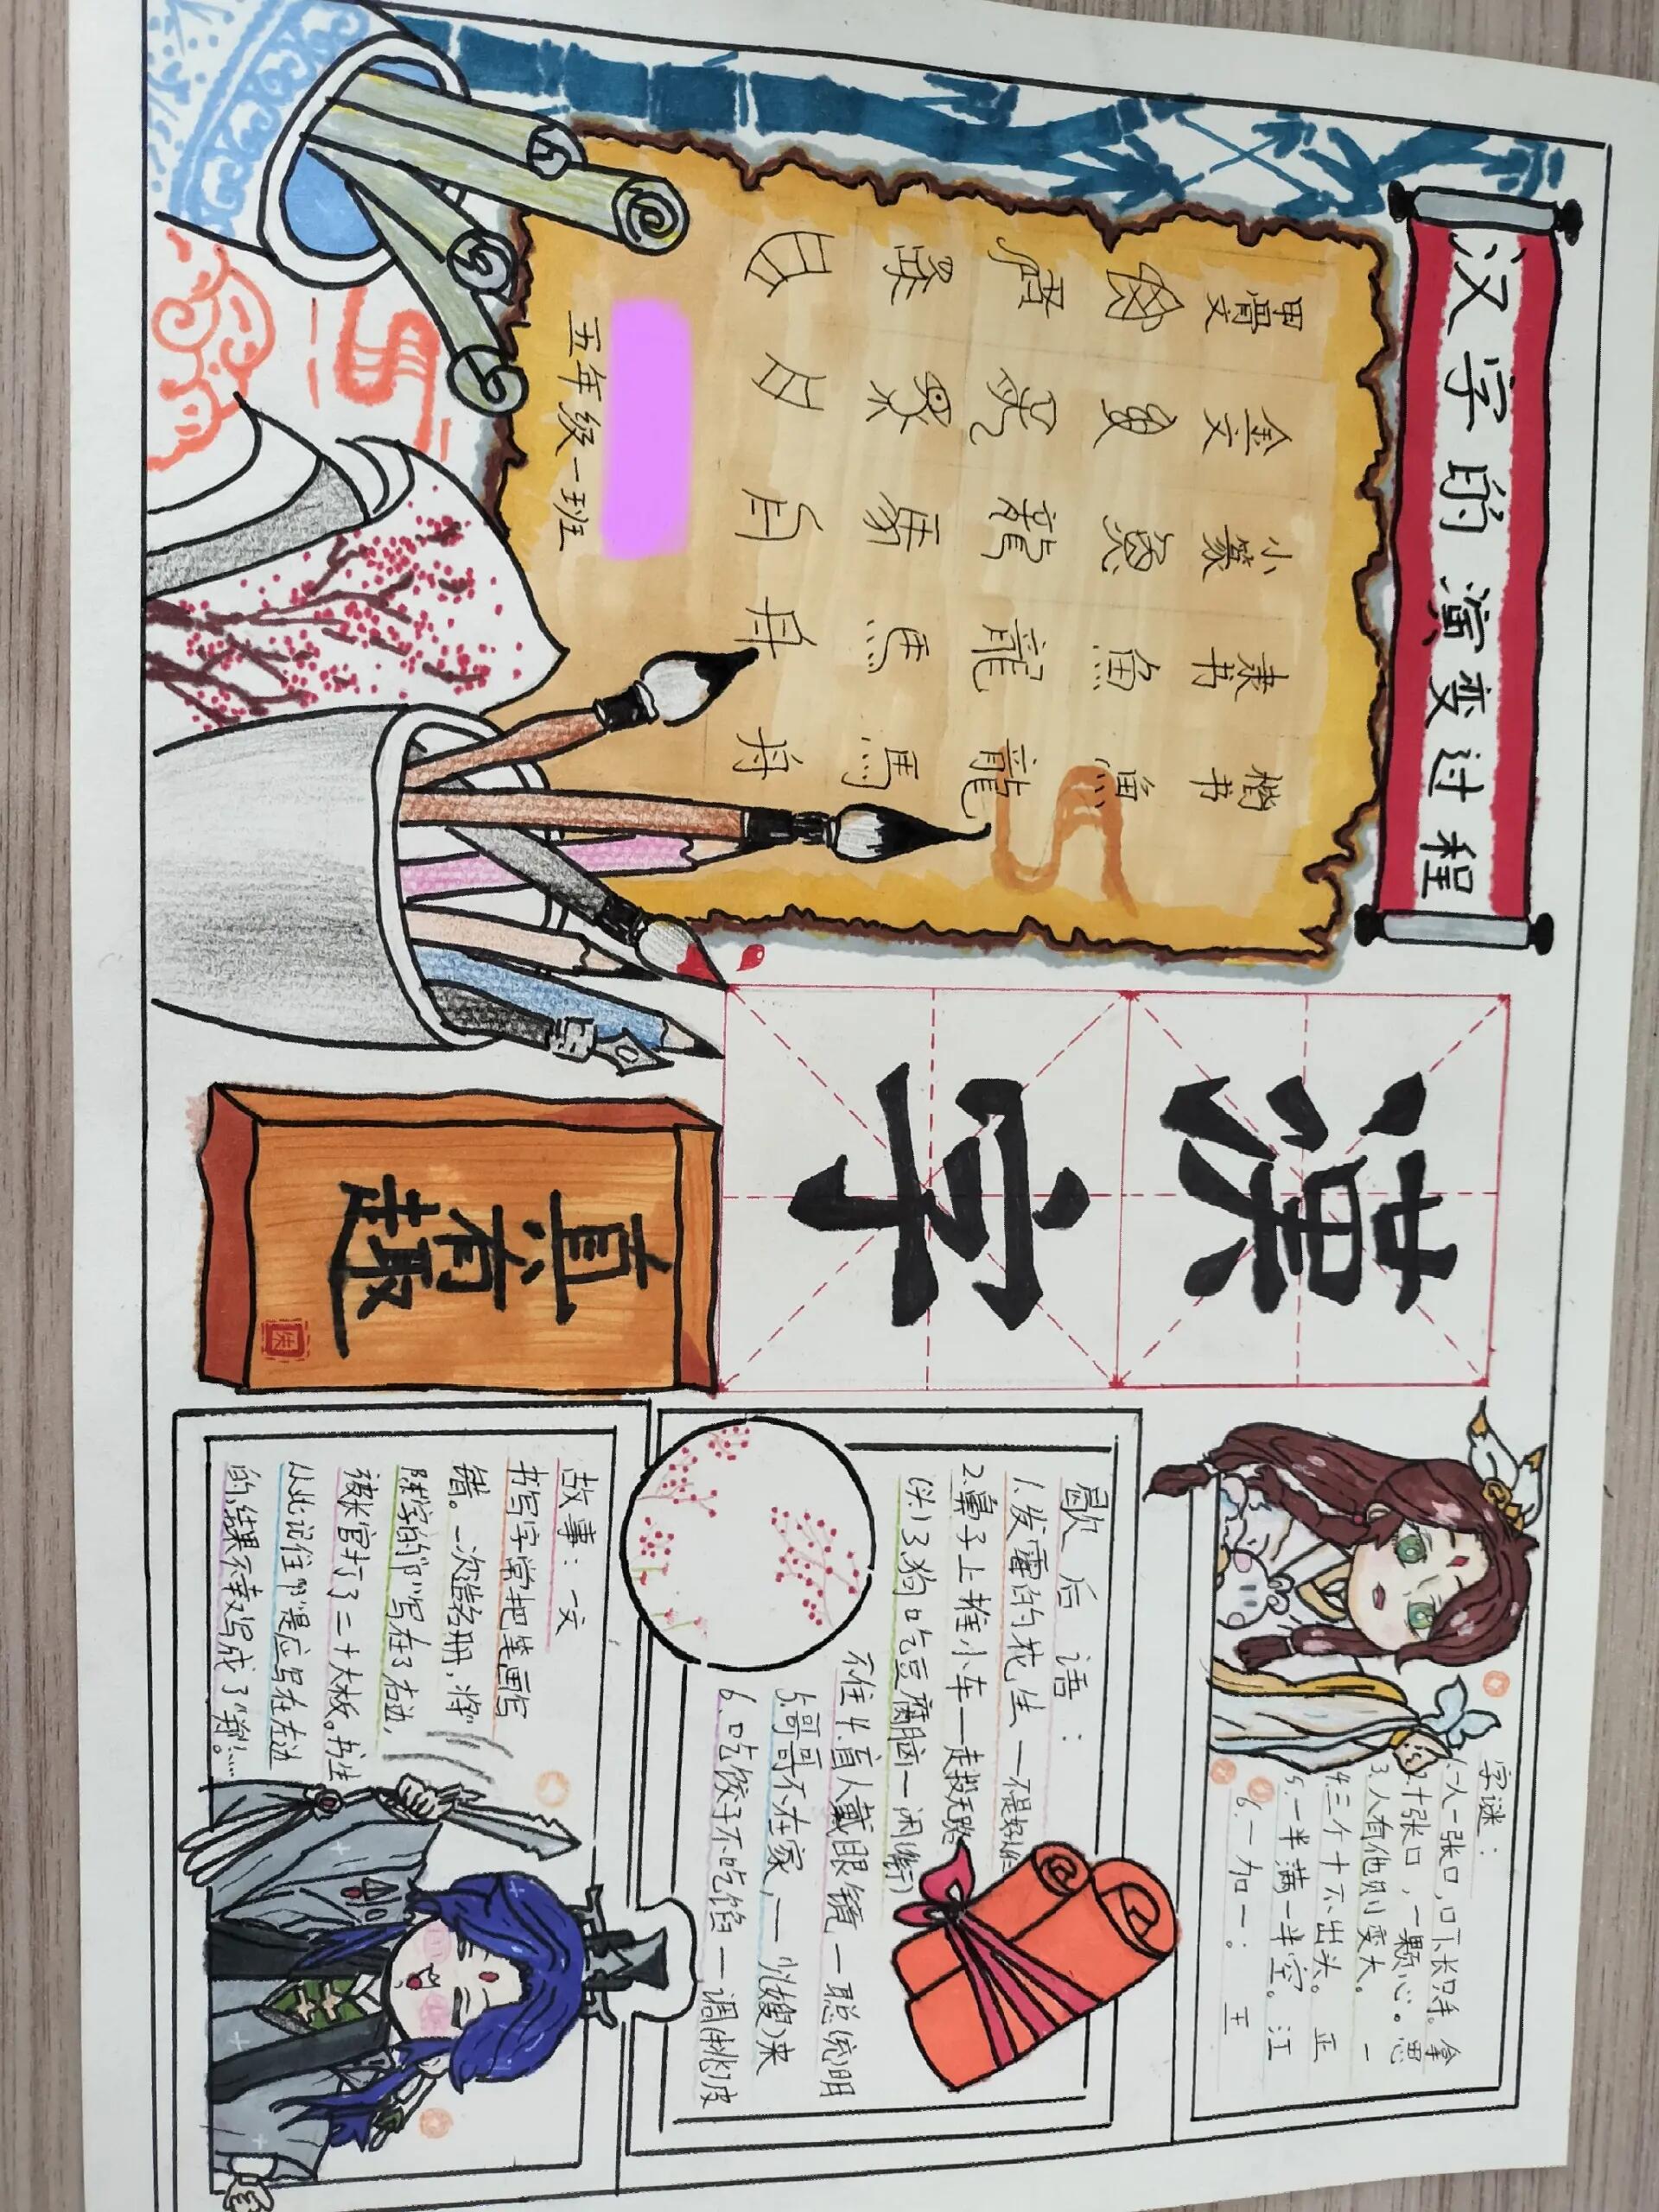 汉字的演变过程
甲骨文 金文 小篆 隶书 楷书
魚 魚
龍 龍 龍
馬 馬 馬
月 舟 舟
五年级一班
漢字
真有趣
字谜：
1.一人一张口,口下长只手。拿
2.十张口,一颗心。思
3.人有他则变大。一
4.三个十不出头。 亚
5.一半满一半空。 江
6.一加一。 王
歇后语：
1.发霉的花生—不是好仁
2.鼻子上推小车—走投无路
3.狗口吃豆腐脑—闲(衔)
不住 4.盲人戴眼镜—聪(充)明
5.哥哥不在家,—少(嫂)来
6.吃饺子不吃馅—调(挑)皮
故事：一文
书写字常把笔画写
错。一次造名册,将
陈字的“阝”写在了右边,
被长官打了二十大板。书生
从此记住“阝”是应写在左边
的,结果不幸又写成了“郑”……